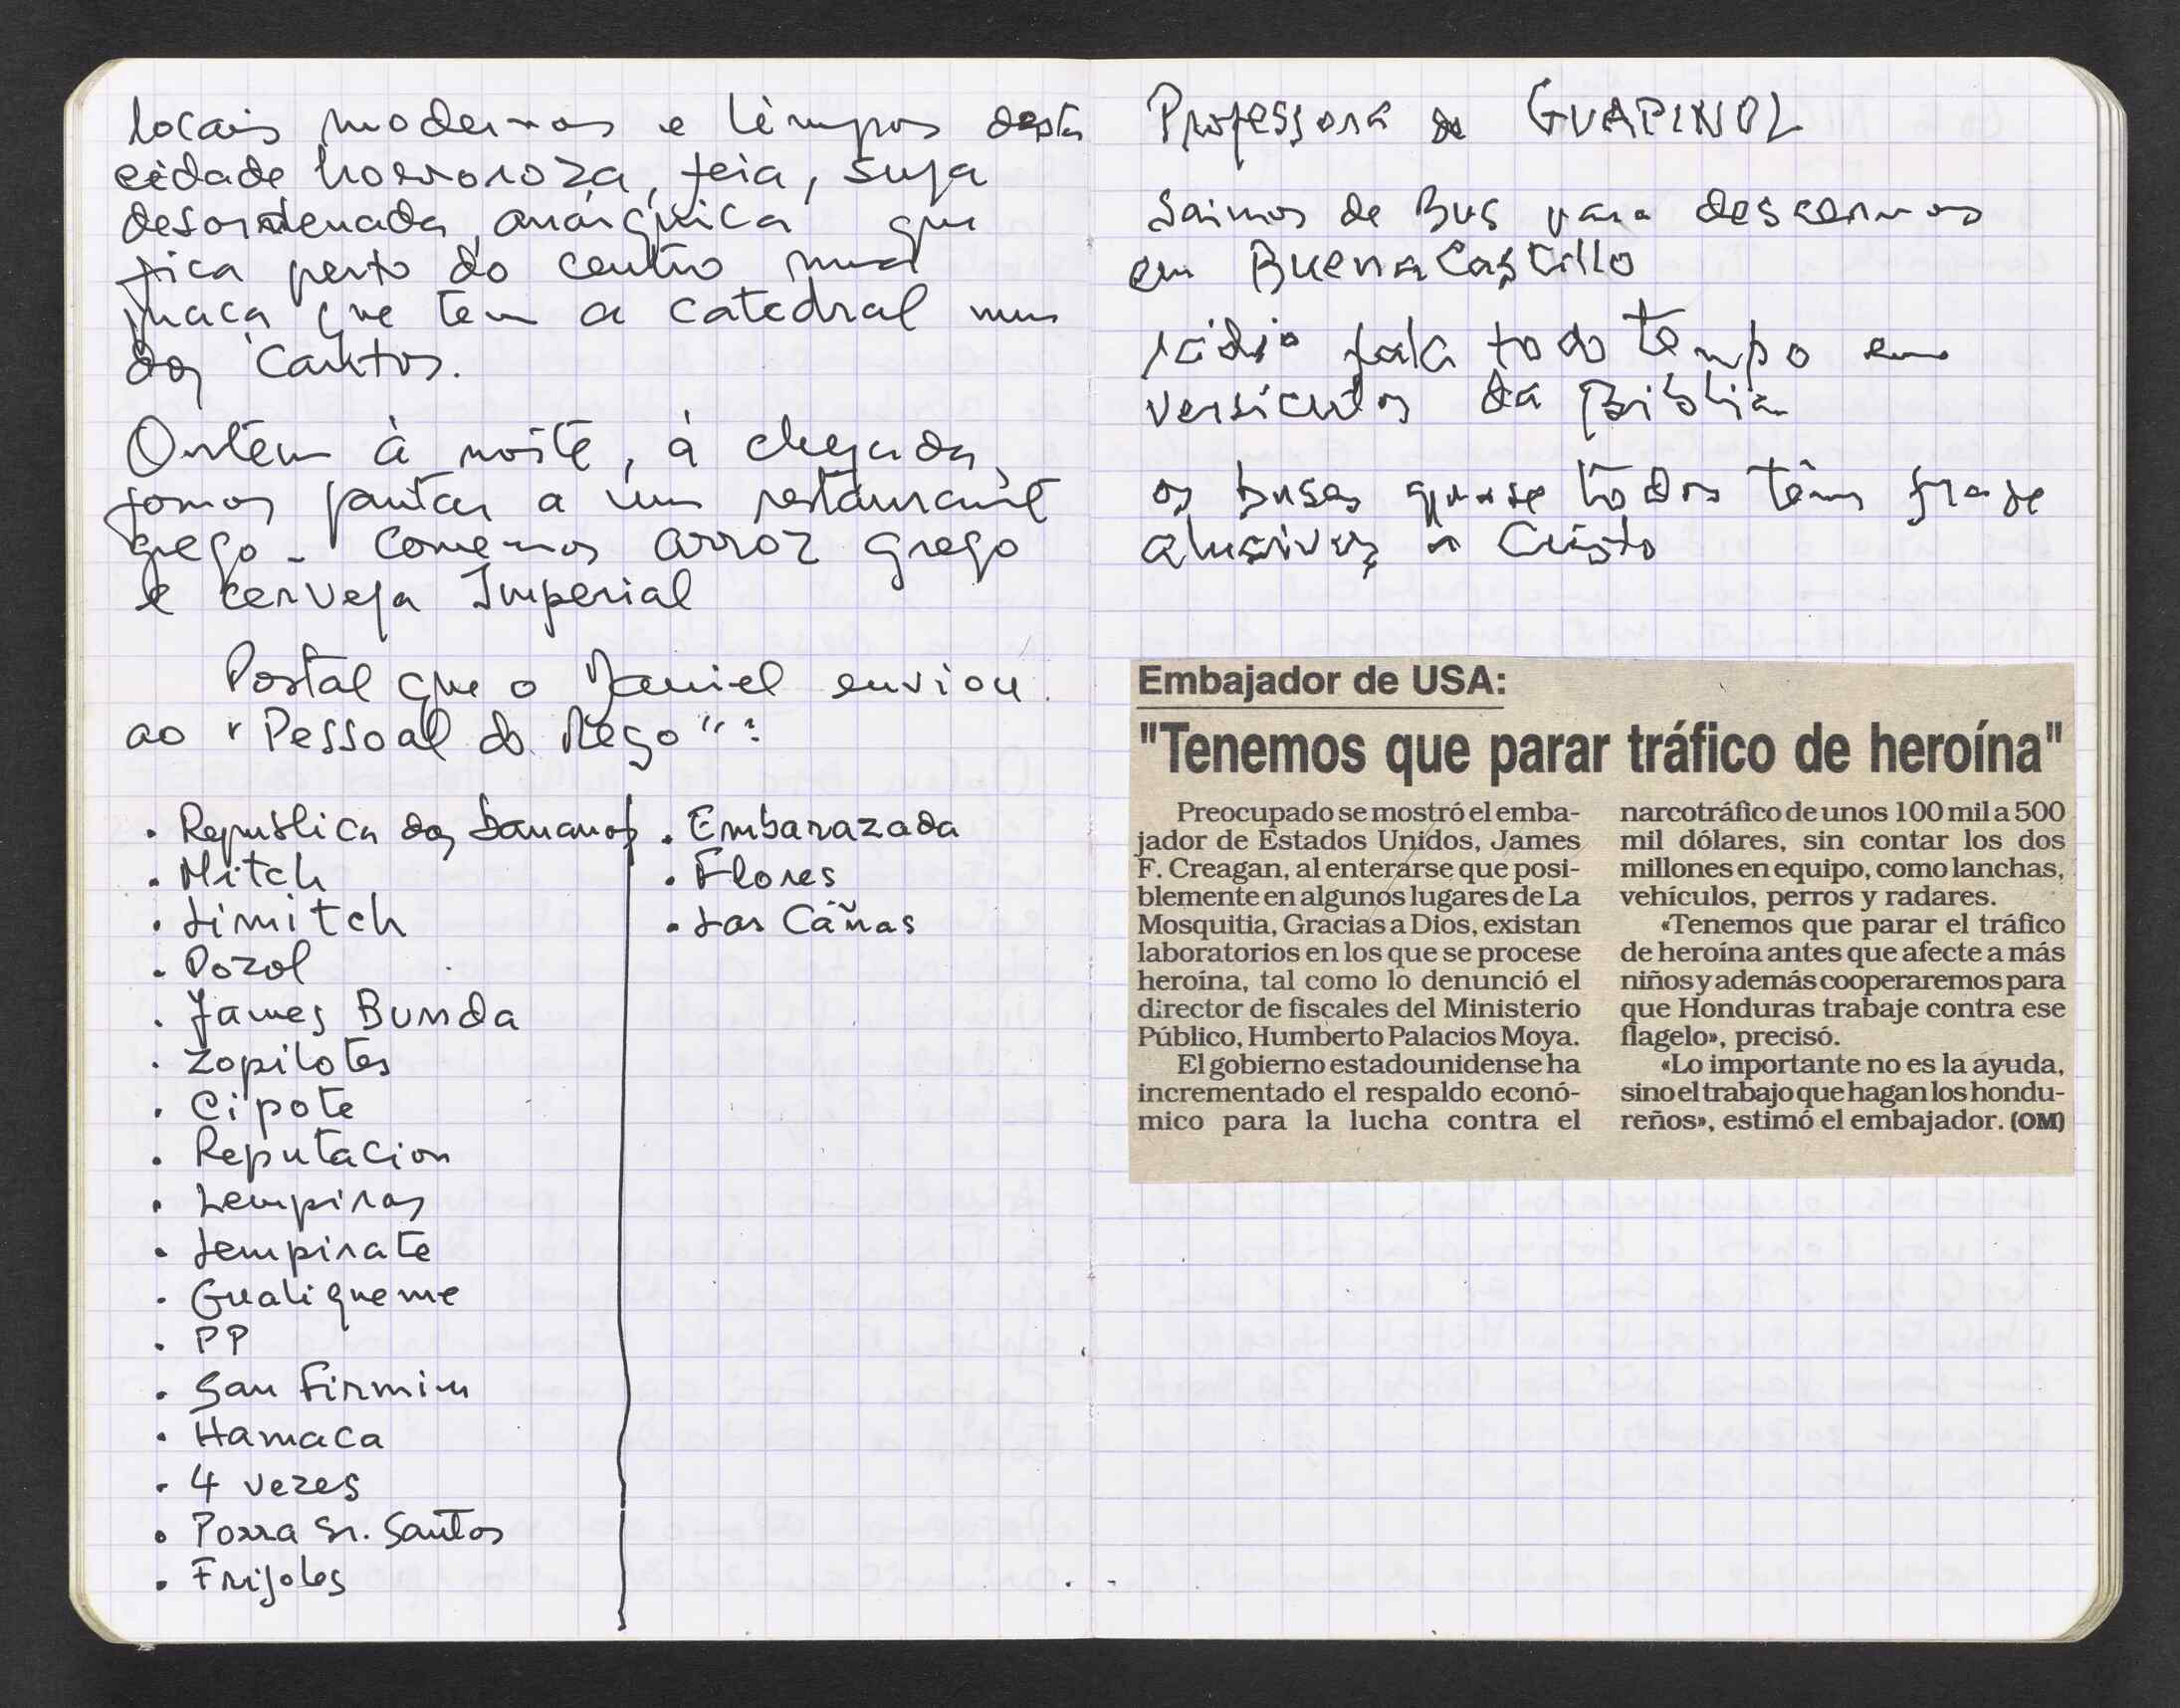 locais modernos e limpos desta
cidade horroroza, feia, suja
desordenada, anárquica que
fica perto do centro numa
praça que tem a catedral num
dos cantos.
Ontem à noite, à chegada,
fomos jantar a um restaurante
grego. Comemos arroz grego
e cerveja Imperial
Postal que o Daniel enviou
ao "Pessoal do Rego":
• Republica das bananas
• Mitch
• Limitch
• Pozol
• James Bunda
• Zopilotes
• Cipote
• Reputacion
• Lempiras
• Lempirate
• Gualiqueme
• PP
• San Firmin
• Hamaca
• 4 vezes
• Porra Sr. Santos
• Frijoles
• Embarazada
• Flores
• Las Cañas
Professora de GUAPINOL
Saimos de Bus para descermos
em Buena Castillo
rádio fala todo tempo em
versiculos da Biblia
os buses quase todos têm frase
alusivas a Cristo
Embajador de USA:
"Tenemos que parar tráfico de heroína"
Preocupado se mostró el emba-
jador de Estados Unidos, James
F. Creagan, al enterarse que posi-
blemente en algunos lugares de La
Mosquitia, Gracias a Dios, existan
laboratorios en los que se procese
heroína, tal como lo denunció el
director de fiscales del Ministerio
Público, Humberto Palacios Moya.
El gobierno estadounidense ha
incrementado el respaldo econó-
mico para la lucha contra el
narcotráfico de unos 100 mil a 500
mil dólares, sin contar los dos
millones en equipo, como lanchas,
vehículos, perros y radares.
«Tenemos que parar el tráfico
de heroína antes que afecte a más
niños y además cooperaremos para
que Honduras trabaje contra ese
flagelo», precisó.
«Lo importante no es la ayuda,
sino el trabajo que hagan los hondu-
reños», estimó el embajador. (OM)